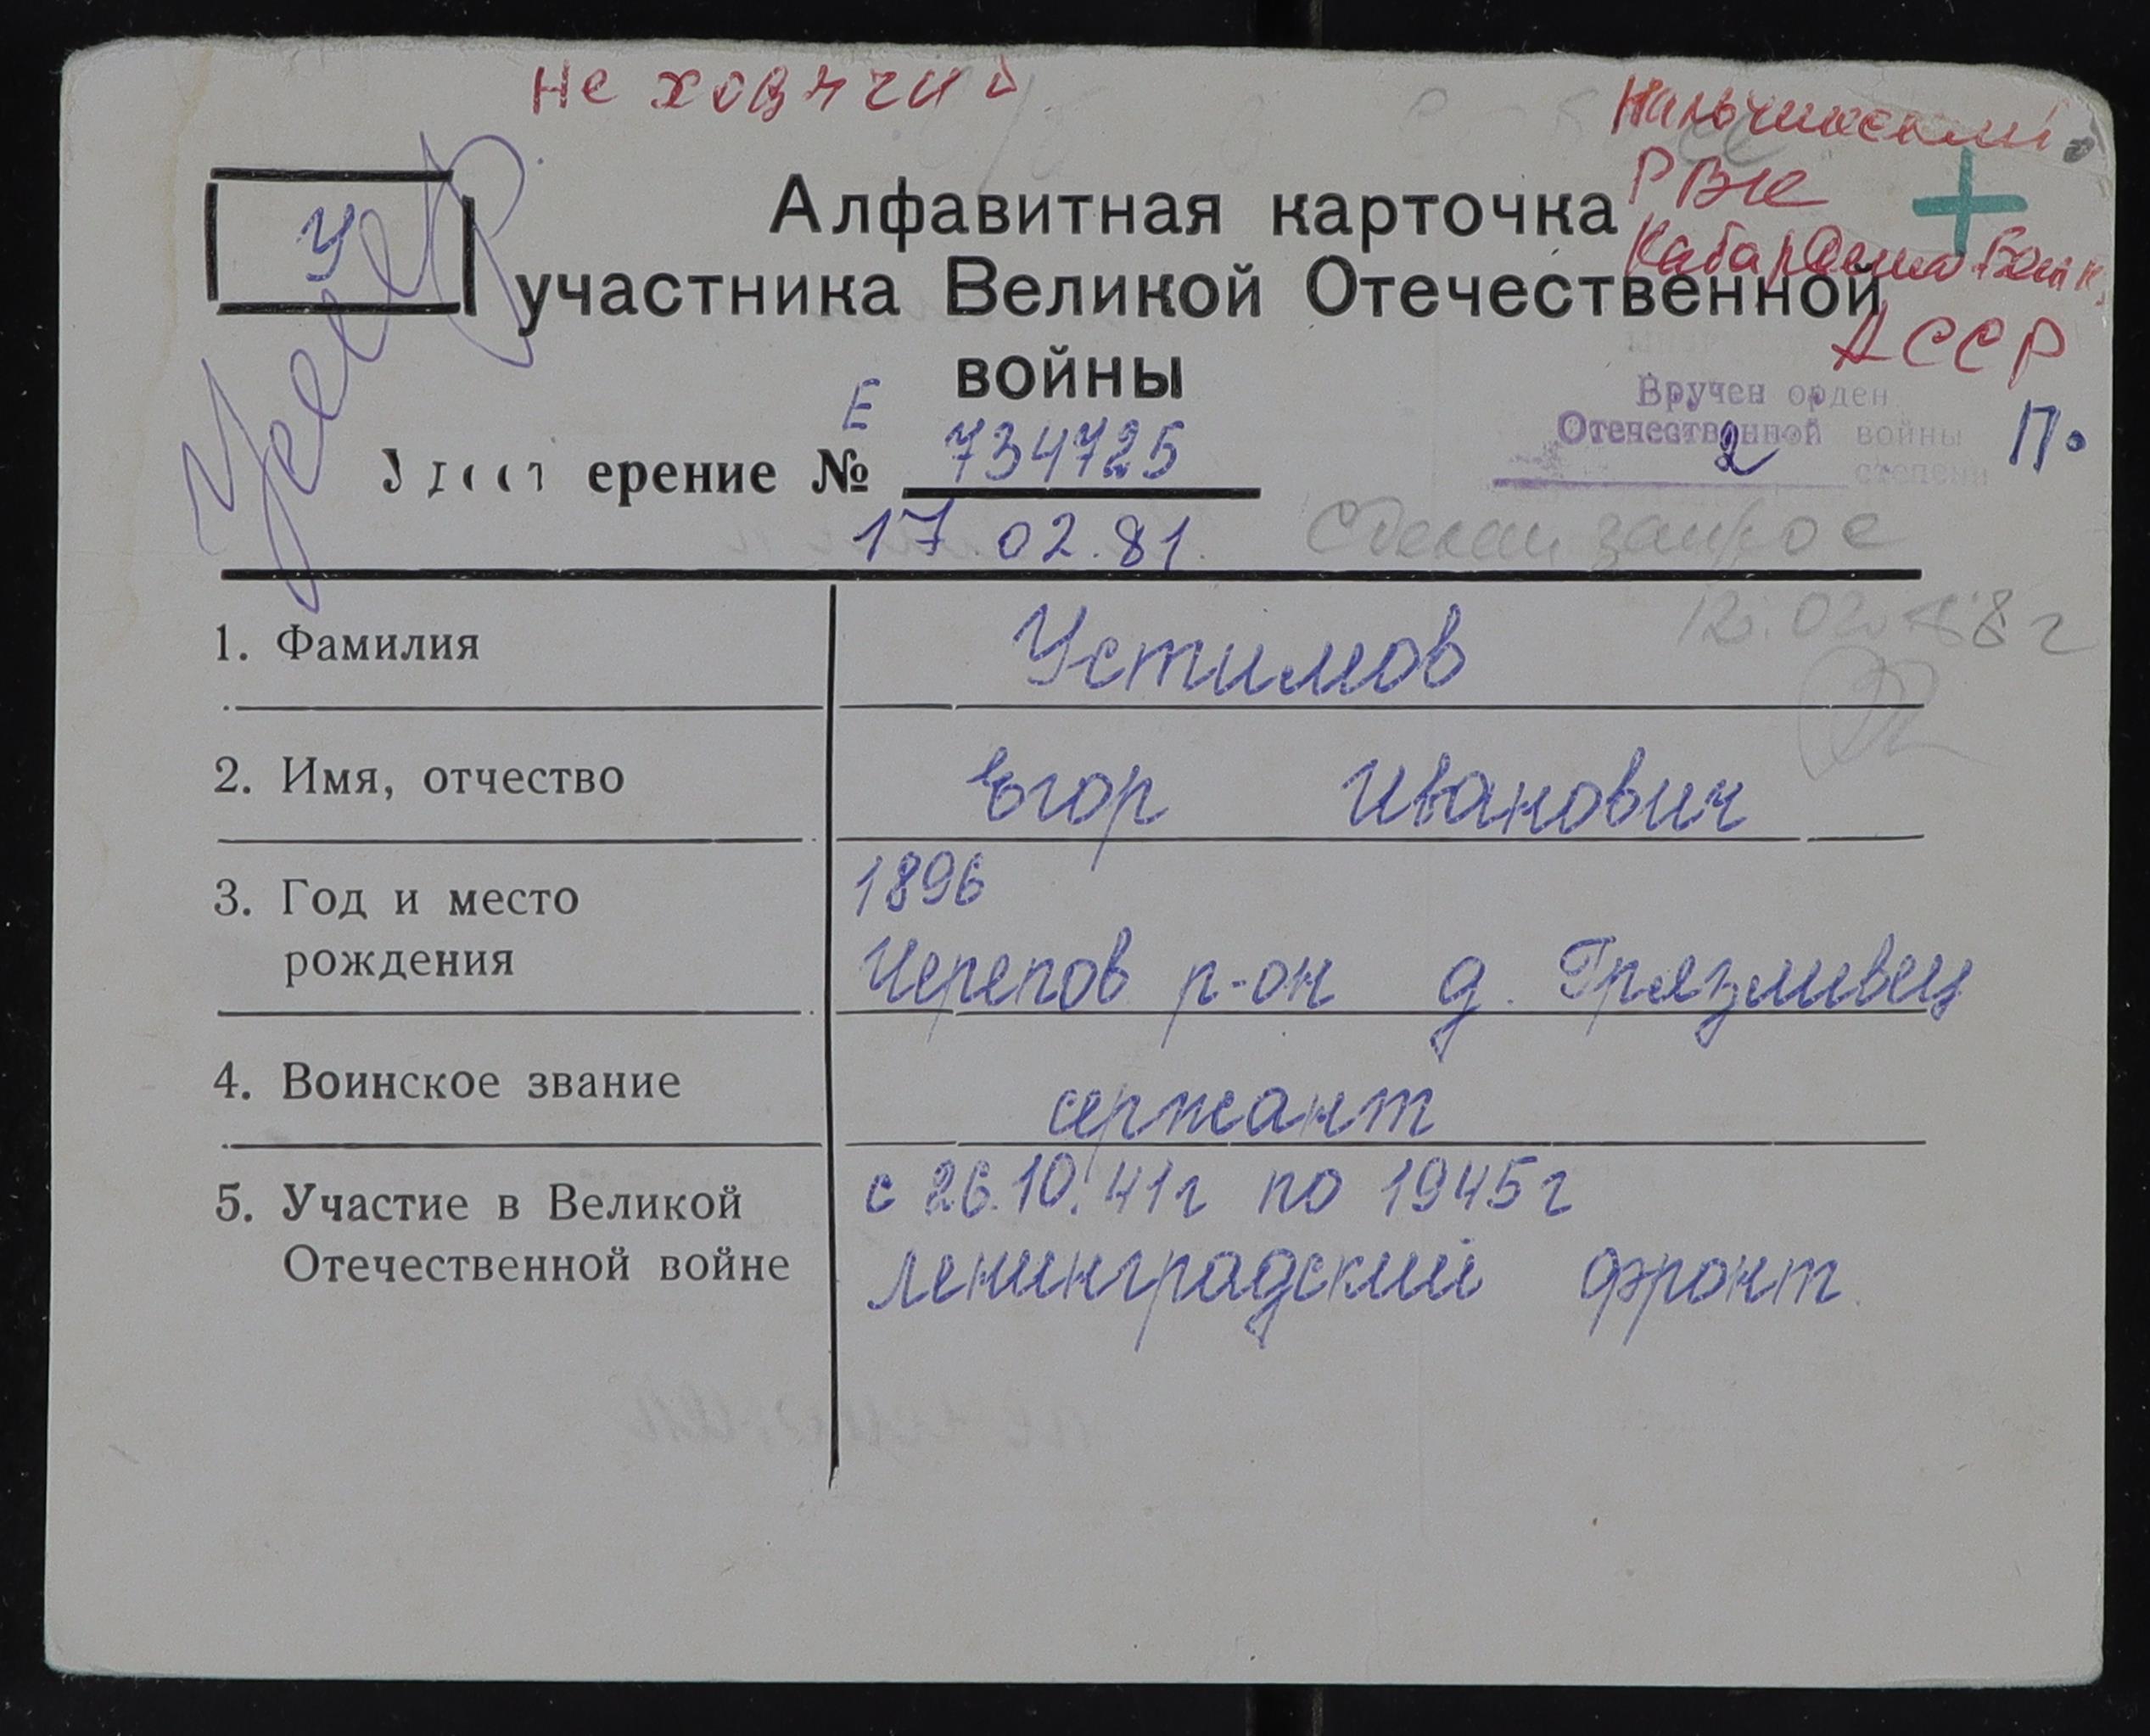 не ходячий
Нальчикский
РВК
Кабардино Балк.
АССР
У
Умер
Алфавитная карточка
участника Великой Отечественной
войны
Вручен орден
Отечественной войны
2 степени
П.
Е
Удостоверение № 734725
17 02.81.
Сделан запрос
12.02.88 г
1. Фамилия Устимов
2. Имя, отчество Егор Иванович
3. Год и место 1896
рождения Черепов р-он д. Грязливец
4. Воинское звание сержант
5. Участие в Великой с 26.10.41г по 1945г
Отечественной войне ленинградский фронт.